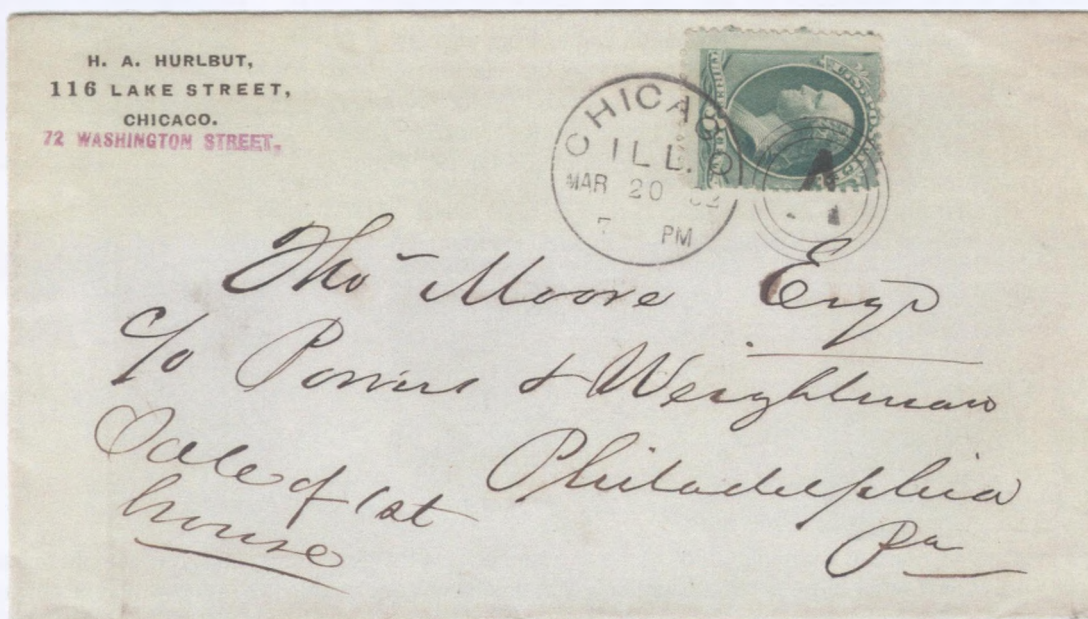 H. A. HURLBUT,
116 LAKE STREET,
CHICAGO.
72 WASHINGTON STREET.
CHICAGO
ILL.
MAR 20 82
7 PM
Tho Moore Esqr
c/o Powers & Weightman
Philadelphia
Pa
Sale of 1st
house